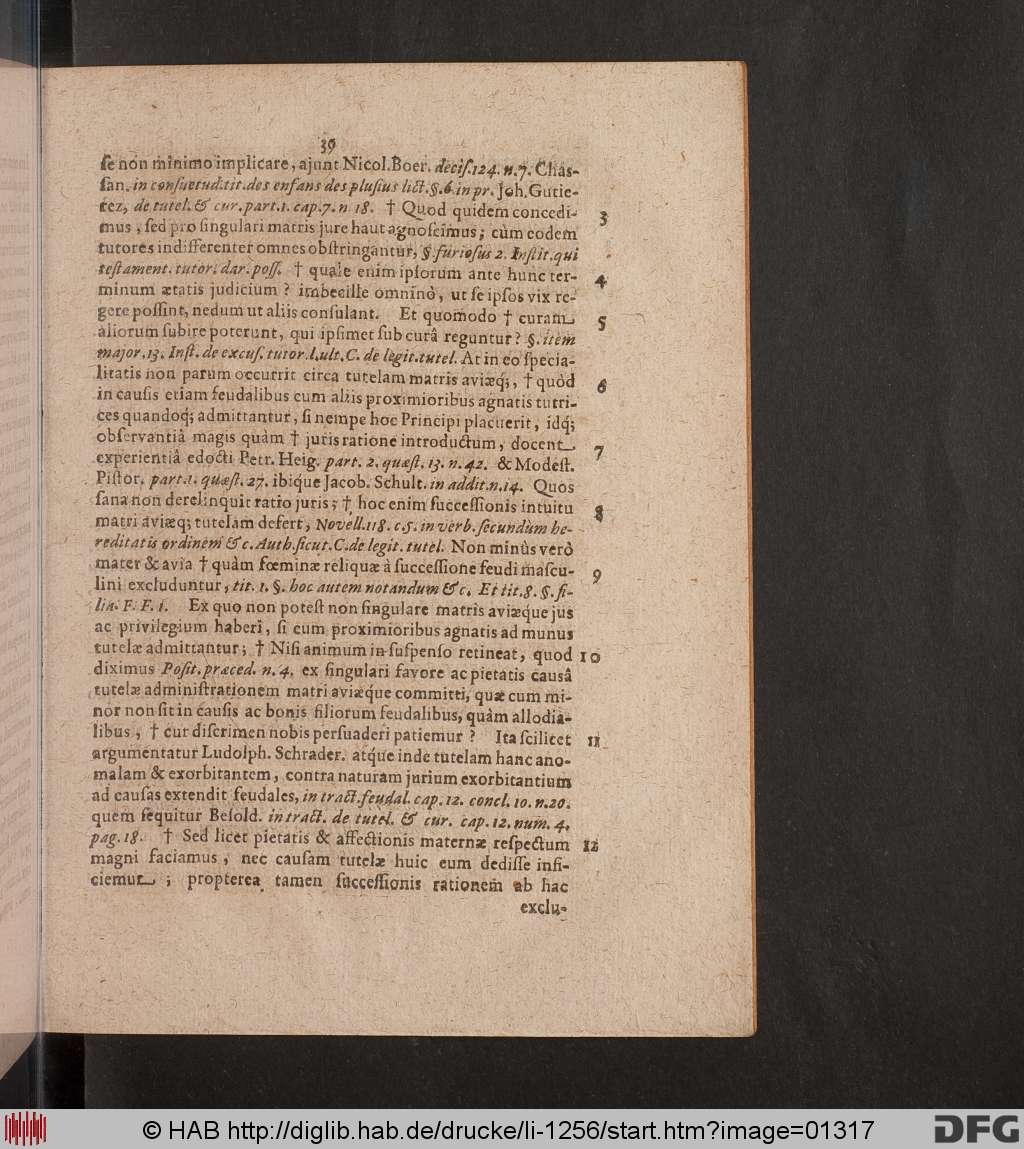 39
ſe non minimo implicare, ajunt Nicol. Boer. deciſ. 124. n. 7. Chaſ-
ſan. in conſuetud. tit. des enfans des pluſius lict. §. 6. in pr. Joh. Gutie-
rez, de tutel. & cur. part. 1. cap. 7. n 18. † Quod quidem concedi- 3
mus, ſed pro ſingulari matris jure haut agnoſcimus; cùm eodem
tutores indifferenter omnes obſtringantur, §. furioſus 2. Inſtit. qui
teſtament. tutor. dar. poſſ. † quale enim ipſorum ante hunc ter- 4
minum ætatis judicium? imbecille omninò, ut ſe ipſos vix re-
gere poſſint, nedum ut aliis conſulant. Et quomodo † curam 5
aliorum ſubire poterunt, qui ipſimet ſub curâ reguntur? §. item
major. 13. Inſt. de excuſ. tutor. l. ult. C. de legit. tutel. At in eo ſpecia-
litatis non parum occurrit circa tutelam matris aviæq;, † quòd 6
in cauſis etiam feudalibus cum aliis proximioribus agnatis tutri-
ces quandoq; admittantur, ſi nempe hoc Principi placuerit, idq;
obſervantiâ magis quàm † juris ratione introductum, docent 7
experientiâ edocti Petr. Heig. part. 2. quæſt. 13. n. 42. & Modeſt.
Piſtor. part. 1. quæſt. 27. ibique Jacob. Schult. in addit. n. 14. Quos
ſana non derelinquit ratio juris; † hoc enim ſucceſſionis intuitu 8
matri aviæq; tutelam defert, Novell. 118. c. 5. in verb. ſecundùm he-
reditatis ordinem & c. Auth. ſicut. C. de legit. tutel. Non minùs verò
mater & avia † quàm fœminæ reliquæ à ſucceſſione feudi maſcu- 9
lini excluduntur, tit. 1. §. hoc autem notandum & c. Et tit. 8. §. fi-
lia. F. F. 1. Ex quo non poteſt non ſingulare matris aviæque jus
ac privilegium haberi, ſi cum proximioribus agnatis ad munus
tutelæ admittantur; † Niſi animum in ſuſpenſo retineat, quod 10
diximus Poſit. præced. n. 4. ex ſingulari favore ac pietatis causâ
tutelæ adminiſtrationem matri aviæque committi, quæ cum mi-
nor non ſit in cauſis ac bonis filiorum feudalibus, quàm allodia-
libus, † cur diſcrimen nobis perſuaderi patiemur? Ita ſcilicet 11
argumentatur Ludolph. Schrader. atq́ue inde tutelam hanc ano-
malam & exorbitantem, contra naturam jurium exorbitantium
ad cauſas extendit feudales, in tract. feudal. cap. 12. concl. 10. n. 20.
quem ſequitur Beſold. in tract. de tutel. & cur. cap. 12. num. 4.
pag. 18. † Sed licet pietatis & affectionis maternæ reſpectum 12
magni faciamus, nec cauſam tutelæ huic eum dediſſe infi-
ciemur; propterea tamen ſucceſſionis rationem ab hac
exclu-
© HAB http://diglib.hab.de/drucke/li-1256/start.htm?image=01317
DFG